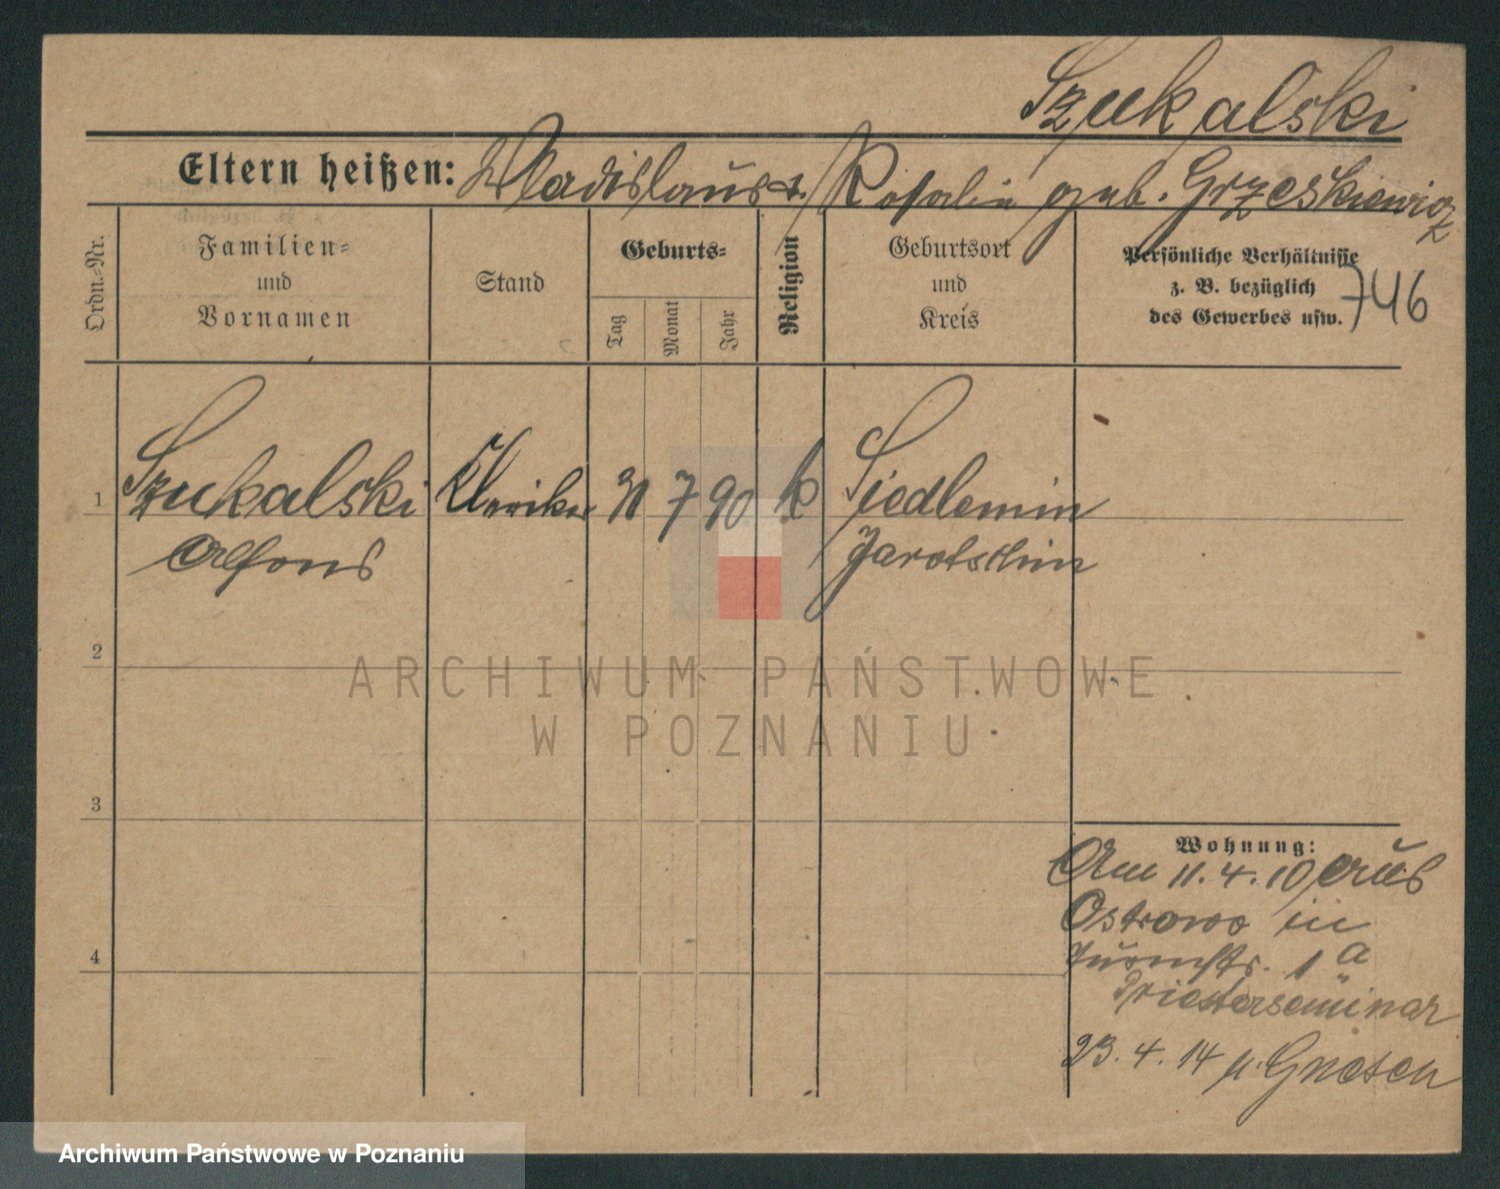 Szukalski
Eltern heißen: Wladislaus u. Rosalie geb. Grzeskiewicz
Ordn.-Nr.
Familien-
und
Vornamen
Stand
Geburts-
Tag
Monat
Jahr
Religion
Geburtsort
und
Kreis
Persönliche Verhältnisse
z. B. bezüglich
des Gewerbes usw.
746
1 Szukalski Kleriker 31 7 90 k Siedlemin
Alfons Jarotschin
2
3
4
Wohnung:
Am 11.4.10 aus
Ostrowo in
Turmstr. 1a
Priesterseminar
23.4.14 n. Gnesen
ARCHIWUM PAŃSTWOWE
W POZNANIU
Archiwum Państwowe w Poznaniu